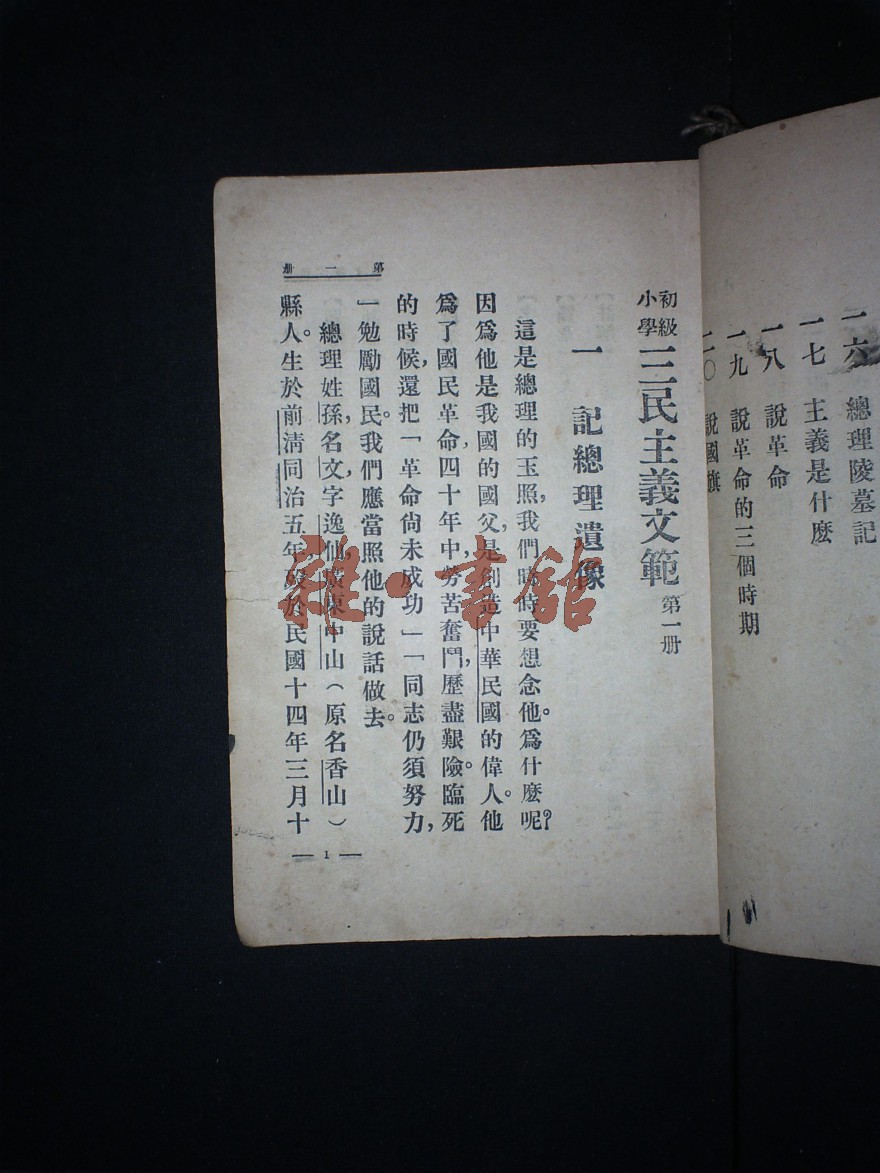 一六 總理陵墓記
一七 主義是什麽
一八 說革命
一九 說革命的三個時期
二〇 說國旗
初級小學 三民主義文範 第一册
一 記總理遺像
這是總理的玉照,我們時時要想念他。爲什麽呢?
因爲他是我國的國父,是創造中華民國的偉人。他
爲了國民革命,四十年中勞苦奮鬥,歷盡艱險。臨死
的時候,還把「革命尙未成功」「同志仍須努力,
」勉勵國民。我們應當照他的說話做去。
總理姓孫,名文,字逸仙,廣東中山(原名香山)
縣人。生於前淸同治五年,歿於民國十四年三月十
第一册
— 1 —
雜·書館